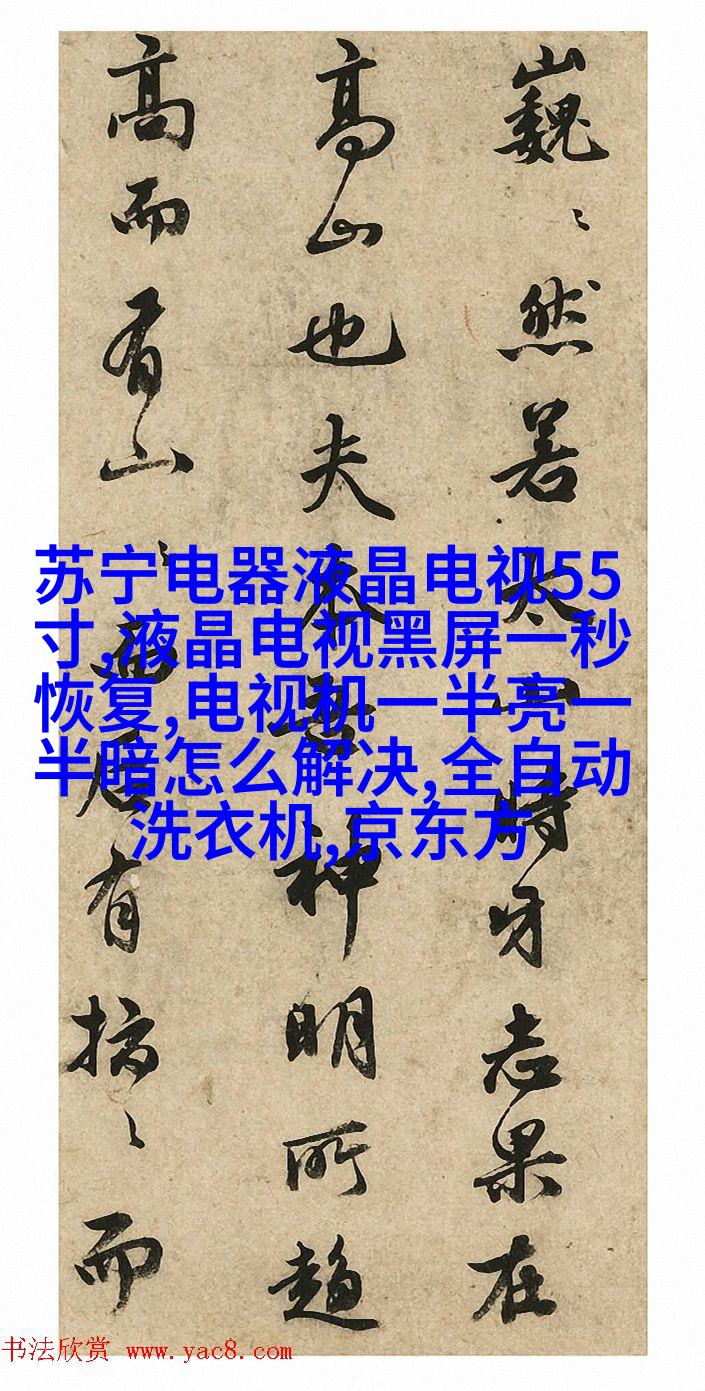 巍〻然若太山時牙志果在
高山也夫本吾神明所趍
高而有山〻居有〻而
苏宁电器液晶电视55
寸,液晶电视黑屏一秒
恢复,电视机一半亮一
半暗怎么解决,全自动
洗衣机,京东方
书法欣赏 www.yac8.com